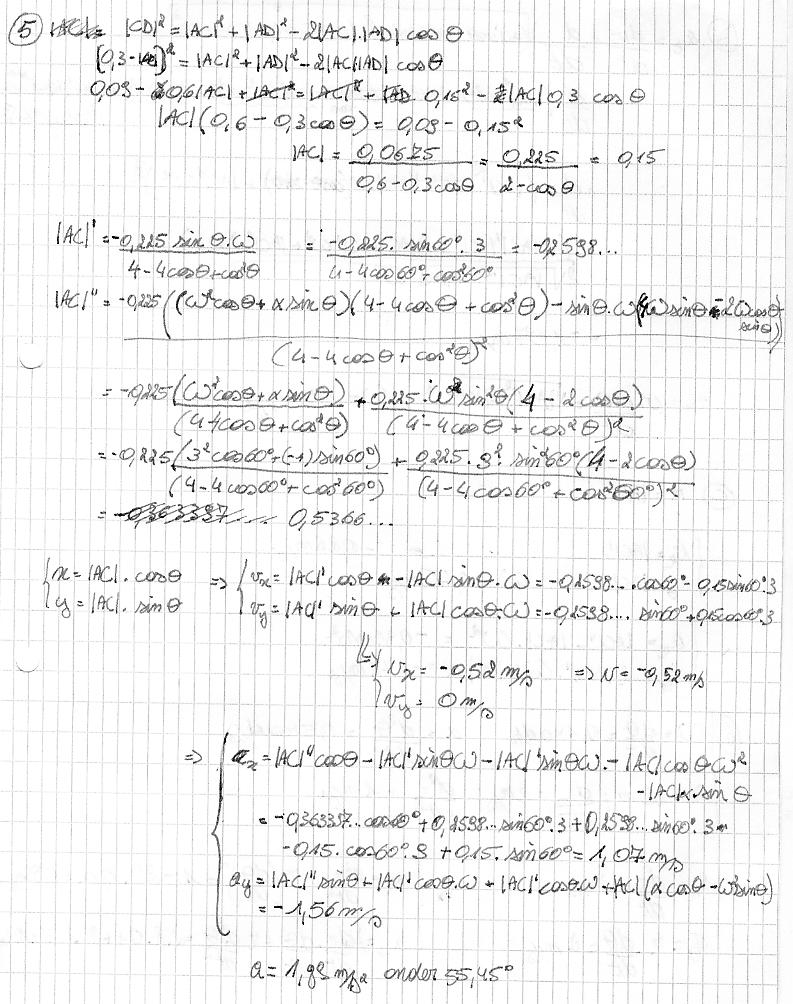 5 |CD|² = |AC|² + |AD|² - 2|AC|.|AD| cos θ
(0,3-|AC|)² = |AC|² + |AD|² - 2|AC||AD| cos θ
0,09 - 0,6|AC| + |AC|² = |AC|² + 0,15² - |AC| 0,3 cos θ
|AC| (0,6 - 0,3cosθ) = 0,09 - 0,15²
|AC| = 0,0675 / (0,6-0,3cosθ) = 0,225 / (2-cosθ) = 0,15
|AC|' = -0,225 sin θ.ω / (4-4cosθ+cos²θ) = -0,225. sin60°. 3 / (4-4cos60°+cos²60°) = -0,2598...
|AC|'' = -0,225 ((ω²cosθ+α sinθ)(4-4cosθ+cos²θ) - sinθ.ω(4ω sinθ - 2ω cosθ sinθ)) / (4-4cosθ+cos²θ)²
= -0,225 (ω²cosθ+α sinθ) / (4-4cosθ+cos²θ) + 0,225.ω² sin²θ (4-2cosθ) / (4-4cosθ+cos²θ)²
= -0,225 (3²cos60°+(-1)sin60°) / (4-4cos60°+cos²60°) + 0,225.3². sin²60°(4-2cosθ) / (4-4cos60°+cos²60°)²
= 0,5366...
{ x = |AC|. cosθ => { vx = |AC|' cosθ - |AC| sinθ.ω = -0,2598.... cos60° - 0,15sin60°.3
{ y = |AC|. sinθ { vy = |AC|' sinθ + |AC| cosθ.ω = -0,2598... sin60° + 0,15cos60°.3
=> { vx = -0,52 m/s => v = -0,52 m/s
{ vy = 0 m/s
=> { ax = |AC|'' cosθ - |AC|' sinθ ω - |AC|' sinθ ω - |AC| cosθ.ω²
- |AC| α sin θ
= -0,363397... cos60° + 0,2598... sin60°.3 + 0,2598... sin60°.3 -
-0,15. cos60°.9 + 0,15. sin60° = 1,07 m/s
ay = |AC|'' sinθ + |AC|' cosθ.ω + |AC|' cosθ.ω + |AC| (α cosθ - ω² sinθ)
= -1,56 m/s
a = 1,89 m/s² onder 55,45°